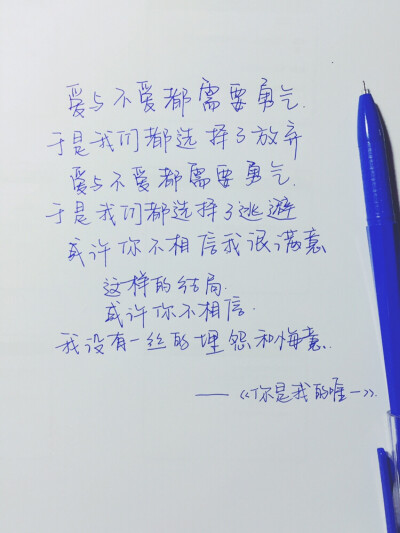 爱与不爱都需要勇气.
于是我们都选择了放弃
爱与不爱都需要勇气.
于是我们都选择了逃避
或许你不相信我很满意
这样的结局.
或许你不相信.
我没有一丝的埋怨和悔意.
——《你是我的唯一》.